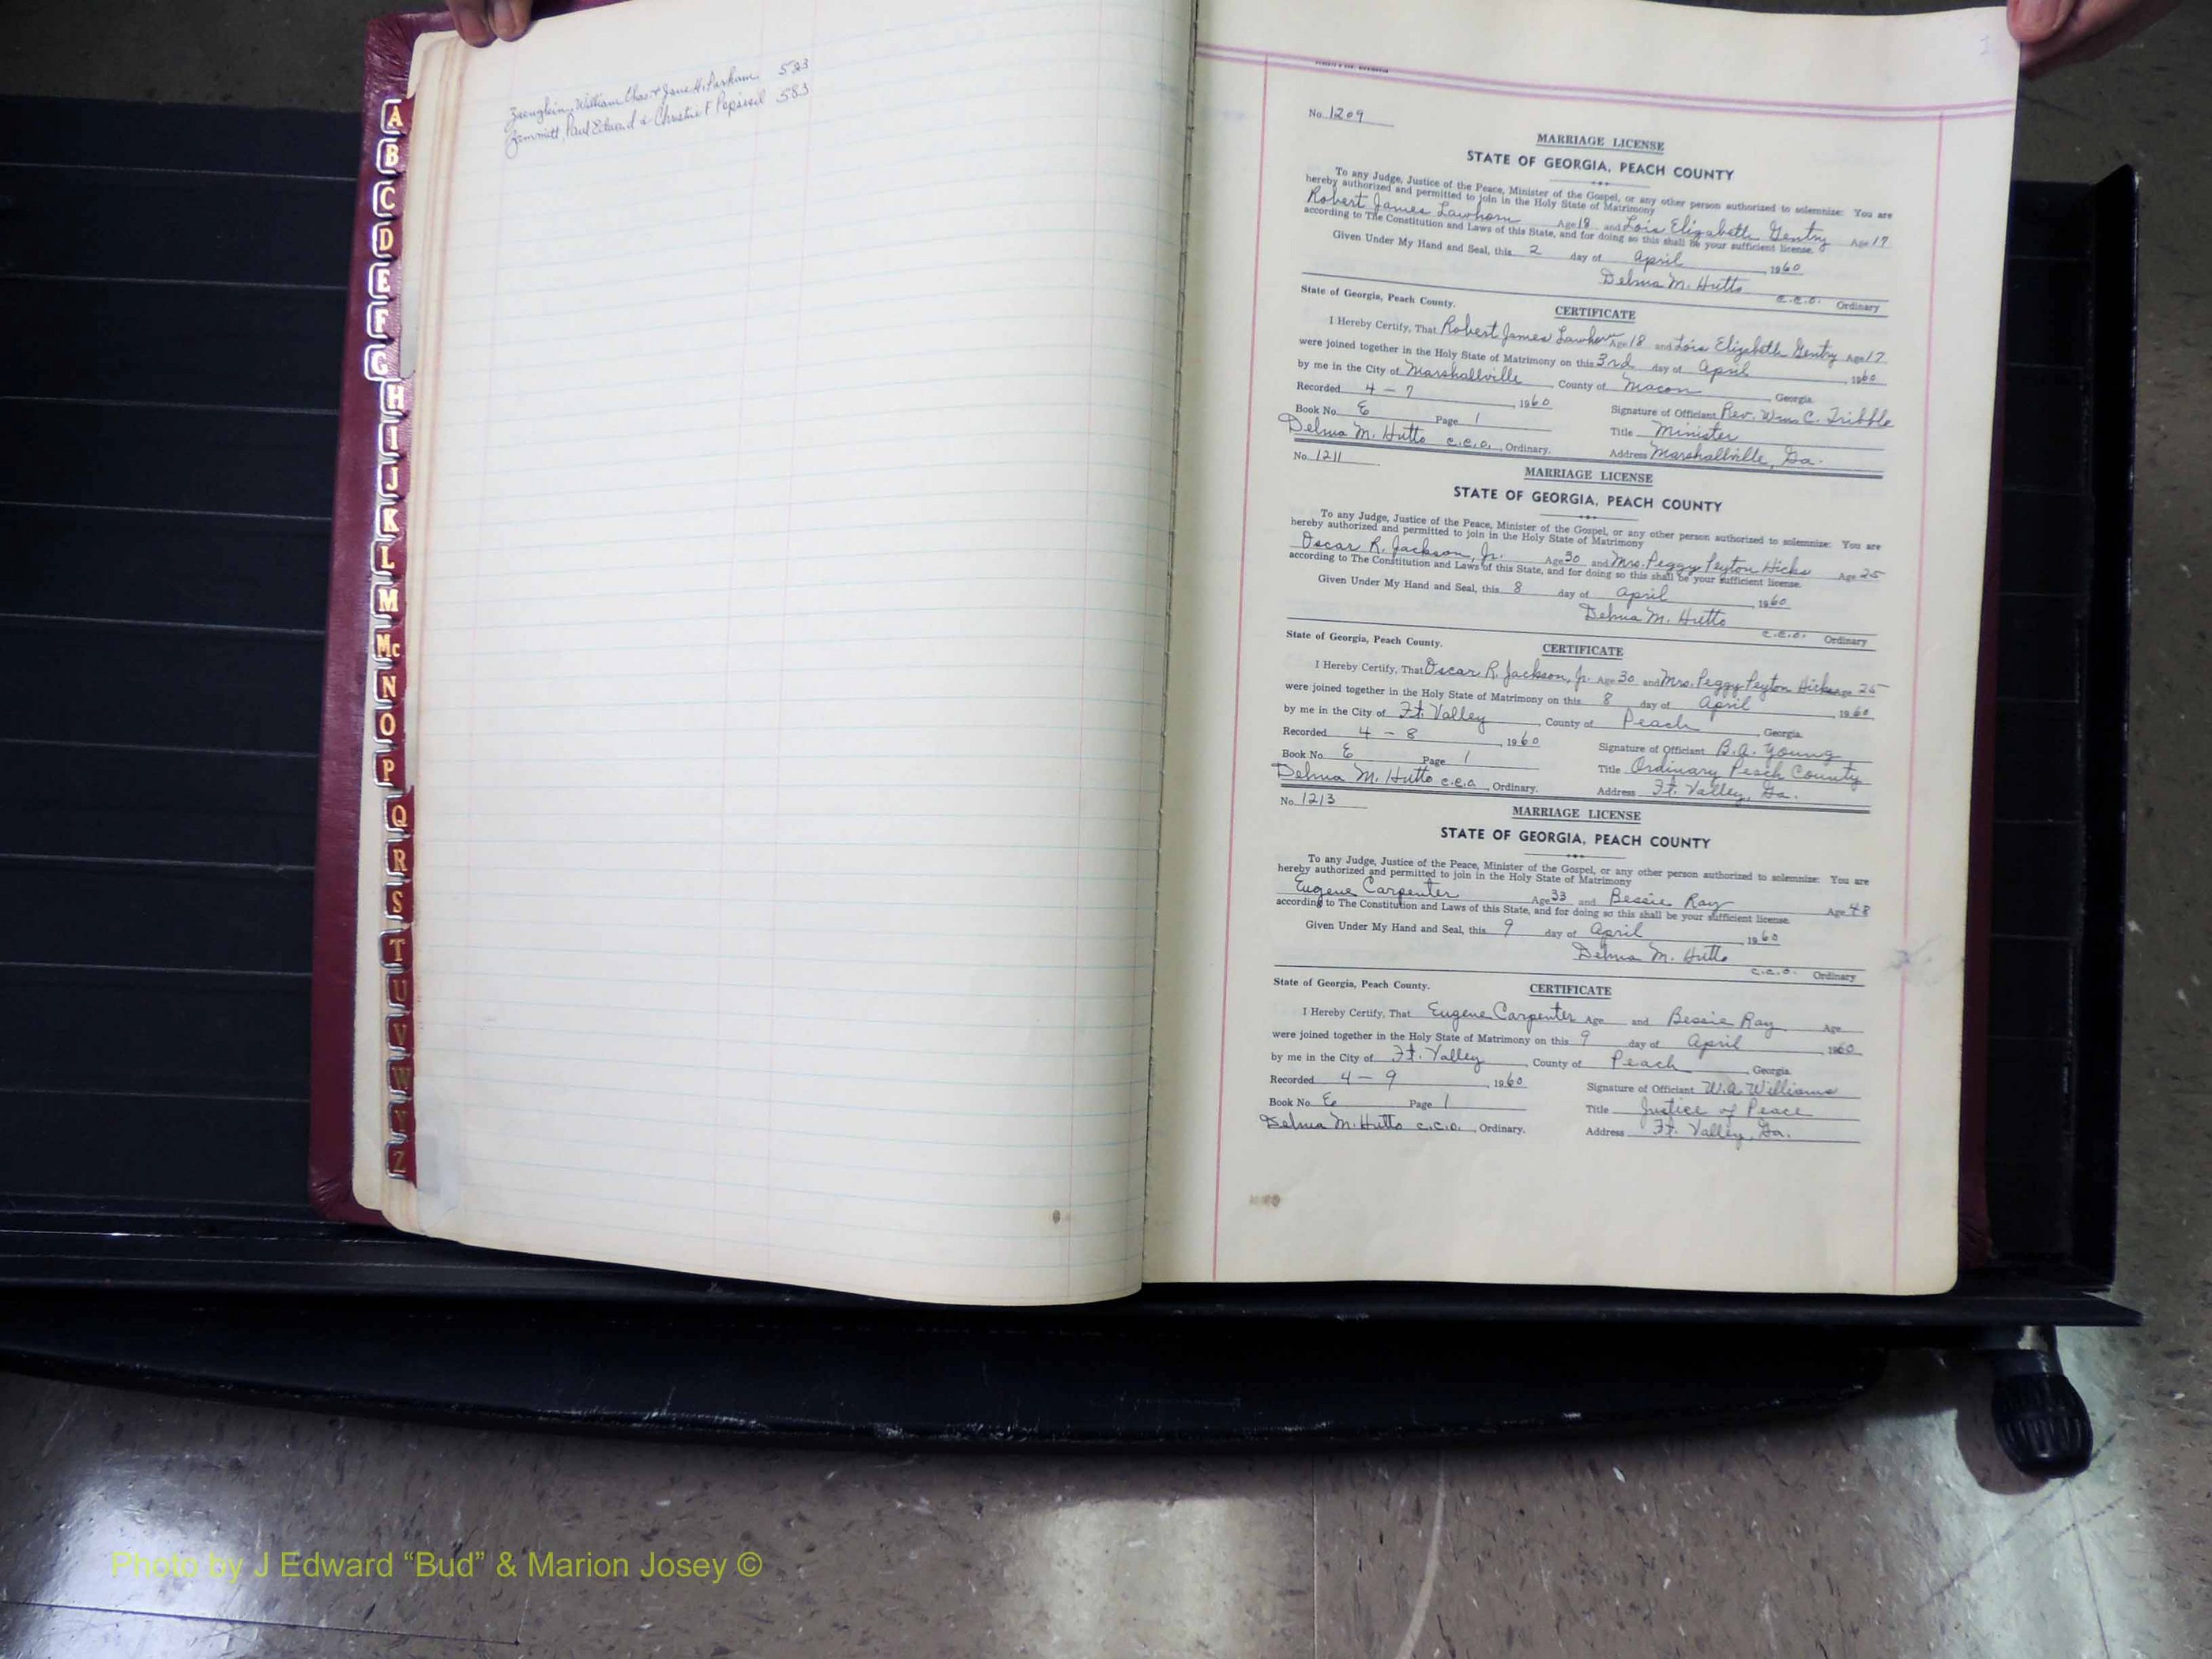 William Chas. & Jane H. Parham 523
Paul Edward & Christine F 583
A
B
C
D
E
F
G
H
I
J
K
L
M
Mc
N
O
P
Q
R
S
T
U
V
W
Y
Z
1
No. 1209
MARRIAGE LICENSE
STATE OF GEORGIA, PEACH COUNTY
To any Judge, Justice of the Peace, Minister of the Gospel, or any other person authorized to solemnize: You are
hereby authorized and permitted to join in the Holy State of Matrimony
Robert James Lawhorn Age 18 and Lois Elizabeth Gentry Age 17
according to The Constitution and Laws of this State, and for doing so this shall be your sufficient license.
Given Under My Hand and Seal, this 2 day of April, 1960
Delma M. Hutto
c.c.o. Ordinary
State of Georgia, Peach County.
CERTIFICATE
I Hereby Certify, That Robert James Lawhorn Age 18 and Lois Elizabeth Gentry Age 17
were joined together in the Holy State of Matrimony on this 3rd day of April, 1960
by me in the City of Marshallville, County of Macon, Georgia.
Recorded 4 - 7, 1960
Signature of Officiant Rev. Wm. C. Tribble
Book No. E Page 1
Title Minister
Delma M. Hutto c.c.o., Ordinary.
Address Marshallville, Ga.
No. 1211
MARRIAGE LICENSE
STATE OF GEORGIA, PEACH COUNTY
To any Judge, Justice of the Peace, Minister of the Gospel, or any other person authorized to solemnize: You are
hereby authorized and permitted to join in the Holy State of Matrimony
Oscar R. Jackson, Jr. Age 30 and Mrs. Peggy Peyton Hicks Age 25
according to The Constitution and Laws of this State, and for doing so this shall be your sufficient license.
Given Under My Hand and Seal, this 8 day of April, 1960
Delma M. Hutto
c.c.o. Ordinary
State of Georgia, Peach County.
CERTIFICATE
I Hereby Certify, That Oscar R. Jackson, Jr. Age 30 and Mrs. Peggy Peyton Hicks Age 25
were joined together in the Holy State of Matrimony on this 8 day of April, 1960
by me in the City of Ft. Valley, County of Peach, Georgia.
Recorded 4 - 8, 1960
Signature of Officiant B.A. Young
Book No. E Page 1
Title Ordinary Peach County
Delma M. Hutto c.c.o., Ordinary.
Address Ft. Valley, Ga.
No. 1213
MARRIAGE LICENSE
STATE OF GEORGIA, PEACH COUNTY
To any Judge, Justice of the Peace, Minister of the Gospel, or any other person authorized to solemnize: You are
hereby authorized and permitted to join in the Holy State of Matrimony
Eugene Carpenter Age 33 and Bessie Ray Age 48
according to The Constitution and Laws of this State, and for doing so this shall be your sufficient license.
Given Under My Hand and Seal, this 9 day of April, 1960
Delma M. Hutto
c.c.o. Ordinary
State of Georgia, Peach County.
CERTIFICATE
I Hereby Certify, That Eugene Carpenter Age and Bessie Ray Age
were joined together in the Holy State of Matrimony on this 9 day of April, 1960
by me in the City of Ft. Valley, County of Peach, Georgia.
Recorded 4 - 9, 1960
Signature of Officiant W.A. Williams
Book No. E Page 1
Title Justice of Peace
Delma M. Hutto c.c.o., Ordinary.
Address Ft. Valley, Ga.
Photo by J Edward “Bud” & Marion Josey ©